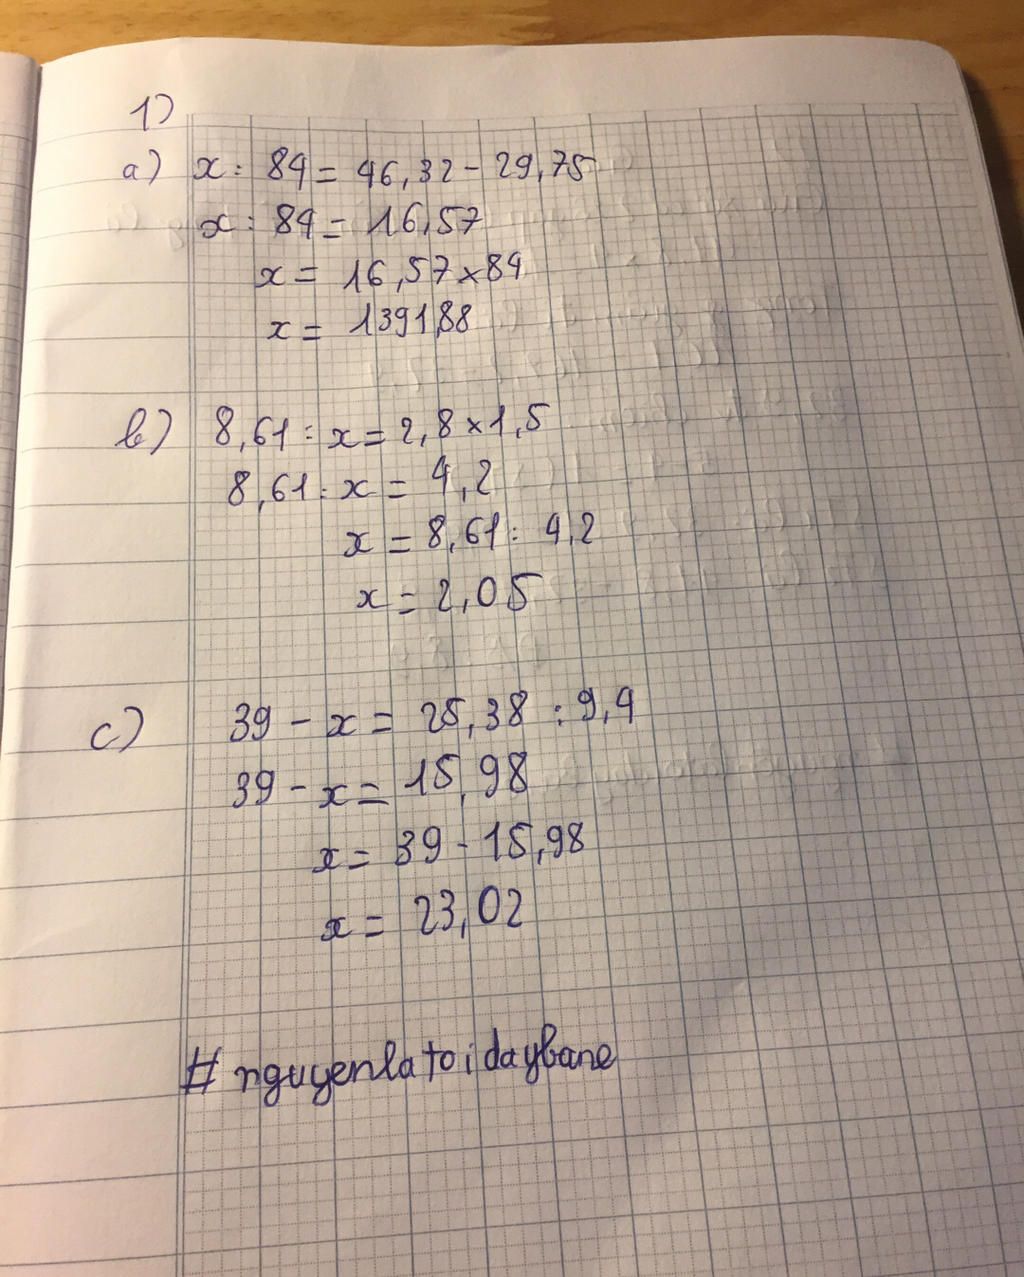 1)
a) x : 84 = 46,32 - 29,75
x : 84 = 16,57
x = 16,57 × 84
x = 1391,88
b) 8,61 : x = 2,8 × 1,5
8,61 : x = 4,2
x = 8,61 : 4,2
x = 2,05
c) 39 - x = 25,38 : 9,4
39 - x = 15,98
x = 39 - 15,98
x = 23,02
# nguyenlatoidaybane